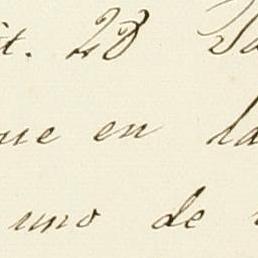 it. 28
que en la
uno de